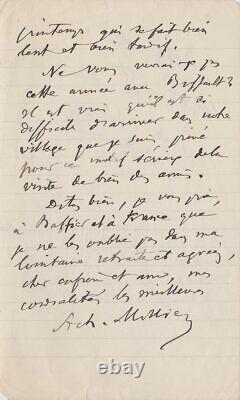 printemps qui se fait bien
lent et bien tardif.
Ne vous verrai-je pas
cette année avec Baffault?
Il est vrai qu'il est si
difficile d'arriver dans notre
village que je suis privé
pour ce motif sérieux de la
visite de bien des amis.
Dites bien, je vous prie,
à Baffier et à France que
je ne les oublie pas dans ma
lointaine retraite et agréez,
cher confrère et ami, mes
cordialités les meilleures
Ach. Millien
© ebay